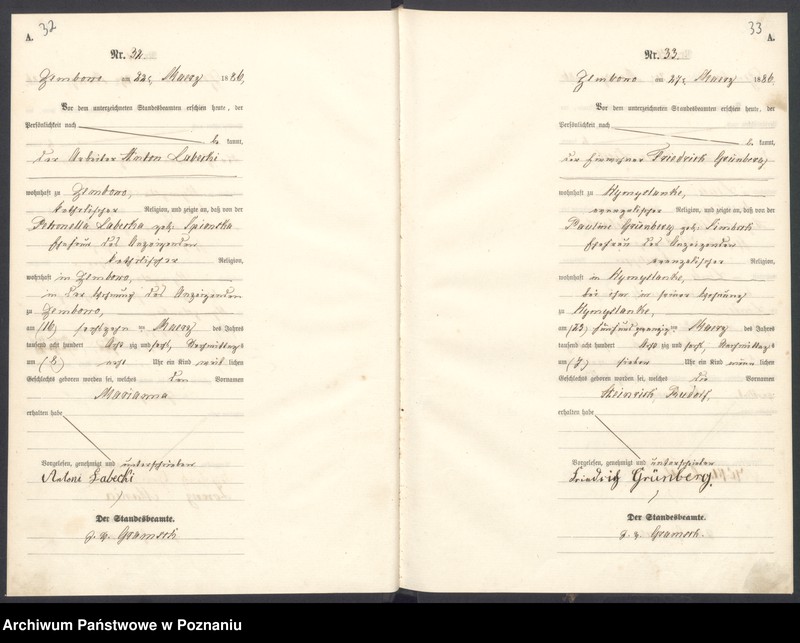 32
A.
Nr. 32.
Zembowo am 22ten Maerz 1886,
Vor dem unterzeichneten Standesbeamten erschien heute, der
Persönlichkeit nach
be kannt,
der Arbeiter Anton Labecki
wohnhaft zu Zembowo,
katholischer Religion, und zeigte an, daß von der
Petronella Labecka geb.
Ehefrau des Anzeigenden
katholischer Religion,
wohnhaft in Zembowo,
in der Wohnung des Anzeigenden
zu Zembowo,
am (16) sechszehn ten Maerz des Jahres
tausend acht hundert acht zig und sechs, Nachmittags
um (8) acht Uhr ein Kind weib lichen
Geschlechts geboren worden sei, welches den Vornamen
Marianna
erhalten habe
Vorgelesen, genehmigt und unterschrieben
Antoni Łabecki
Der Standesbeamte.
Gramsch
33
A.
Nr. 33.
Zembowo am 27ten Maerz 1886.
Vor dem unterzeichneten Standesbeamten erschien heute, der
Persönlichkeit nach
be kannt,
der Einwohner Friedrich Grünberg,
wohnhaft zu
evangelischer Religion, und zeigte an, daß von der
Pauline Grünberg geb.
Ehefrau des Anzeigenden
evangelischer Religion,
wohnhaft in
bei ihm in seiner Wohnung
zu
am (23) Maerz des Jahres
tausend acht hundert acht zig und sechs, Nachmittags
um (7) sieben Uhr ein Kind männ lichen
Geschlechts geboren worden sei, welches die Vornamen
Heinrich, Rudolf,
erhalten habe
Vorgelesen, genehmigt und unterschrieben
Friedrich Grünberg.
Der Standesbeamte.
Gramsch.
Archiwum Państwowe w Poznaniu